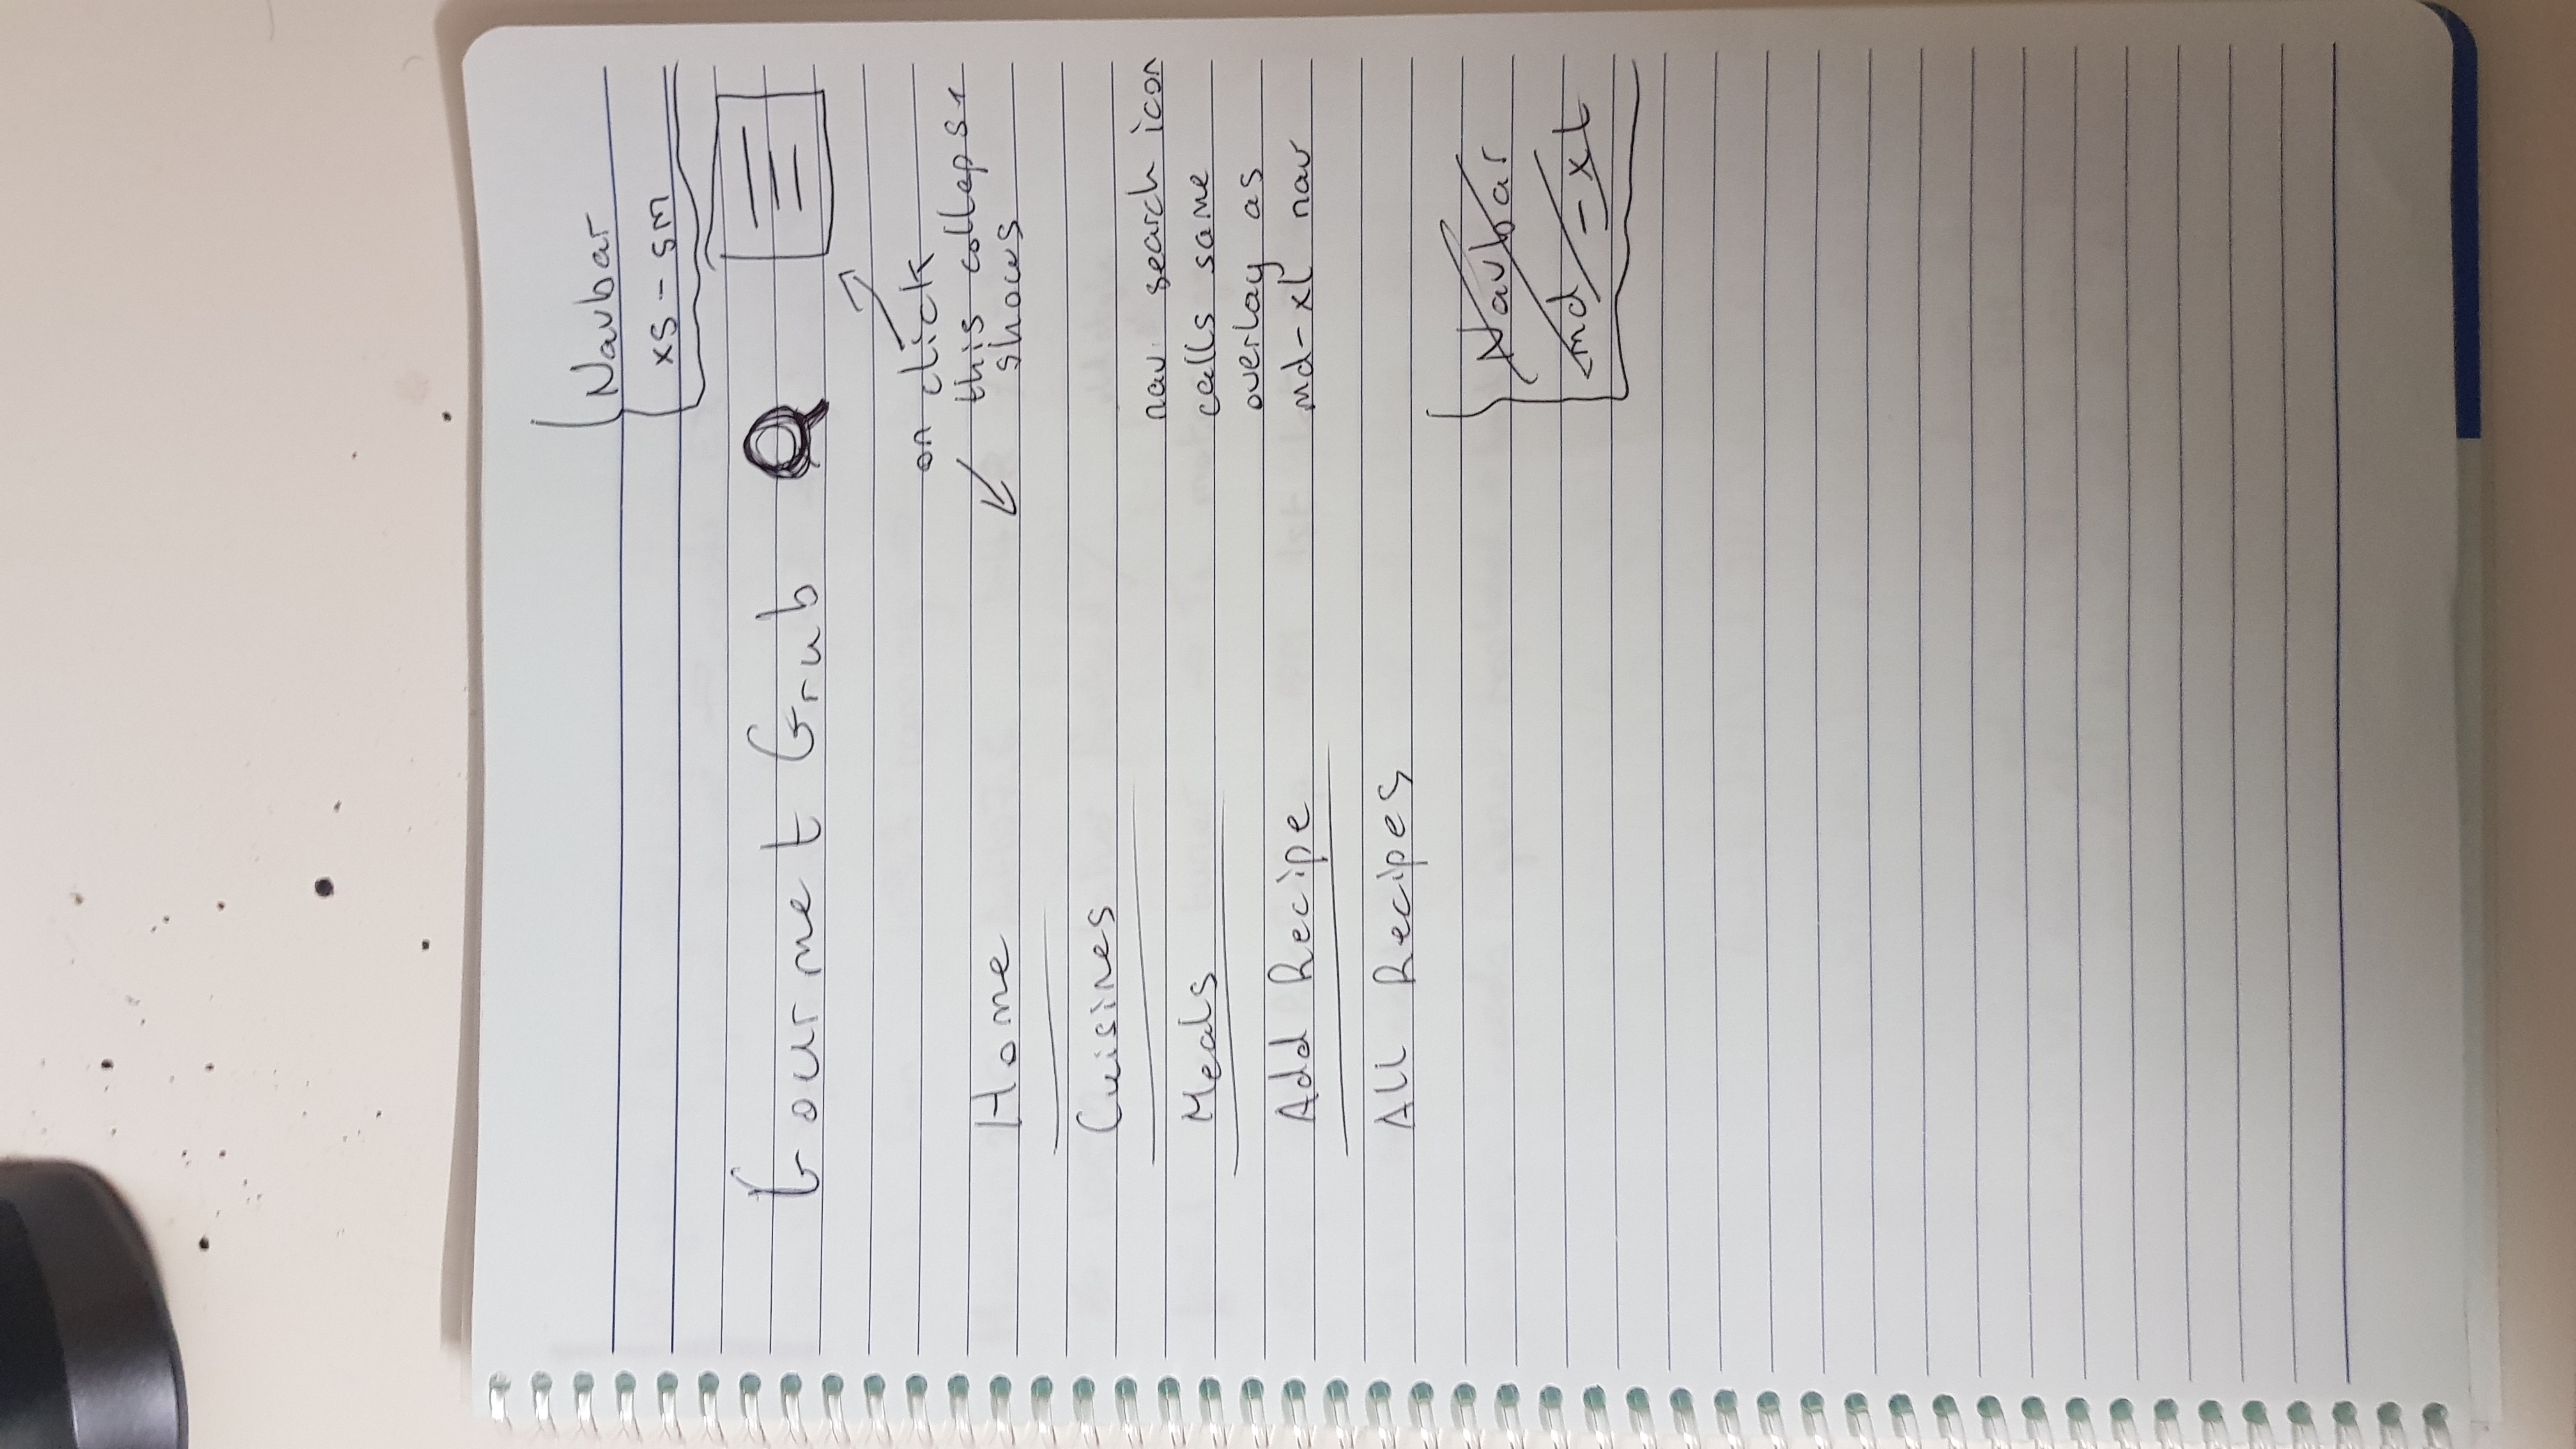 Navbar
xs - sm
Gourmet Grub
on click
this collapse
shows
Home
Cuisines
Meals
Add Recipe
All Recipes
nav search icon
calls same
overlay as
md-xl nav
Navbar
md - xl